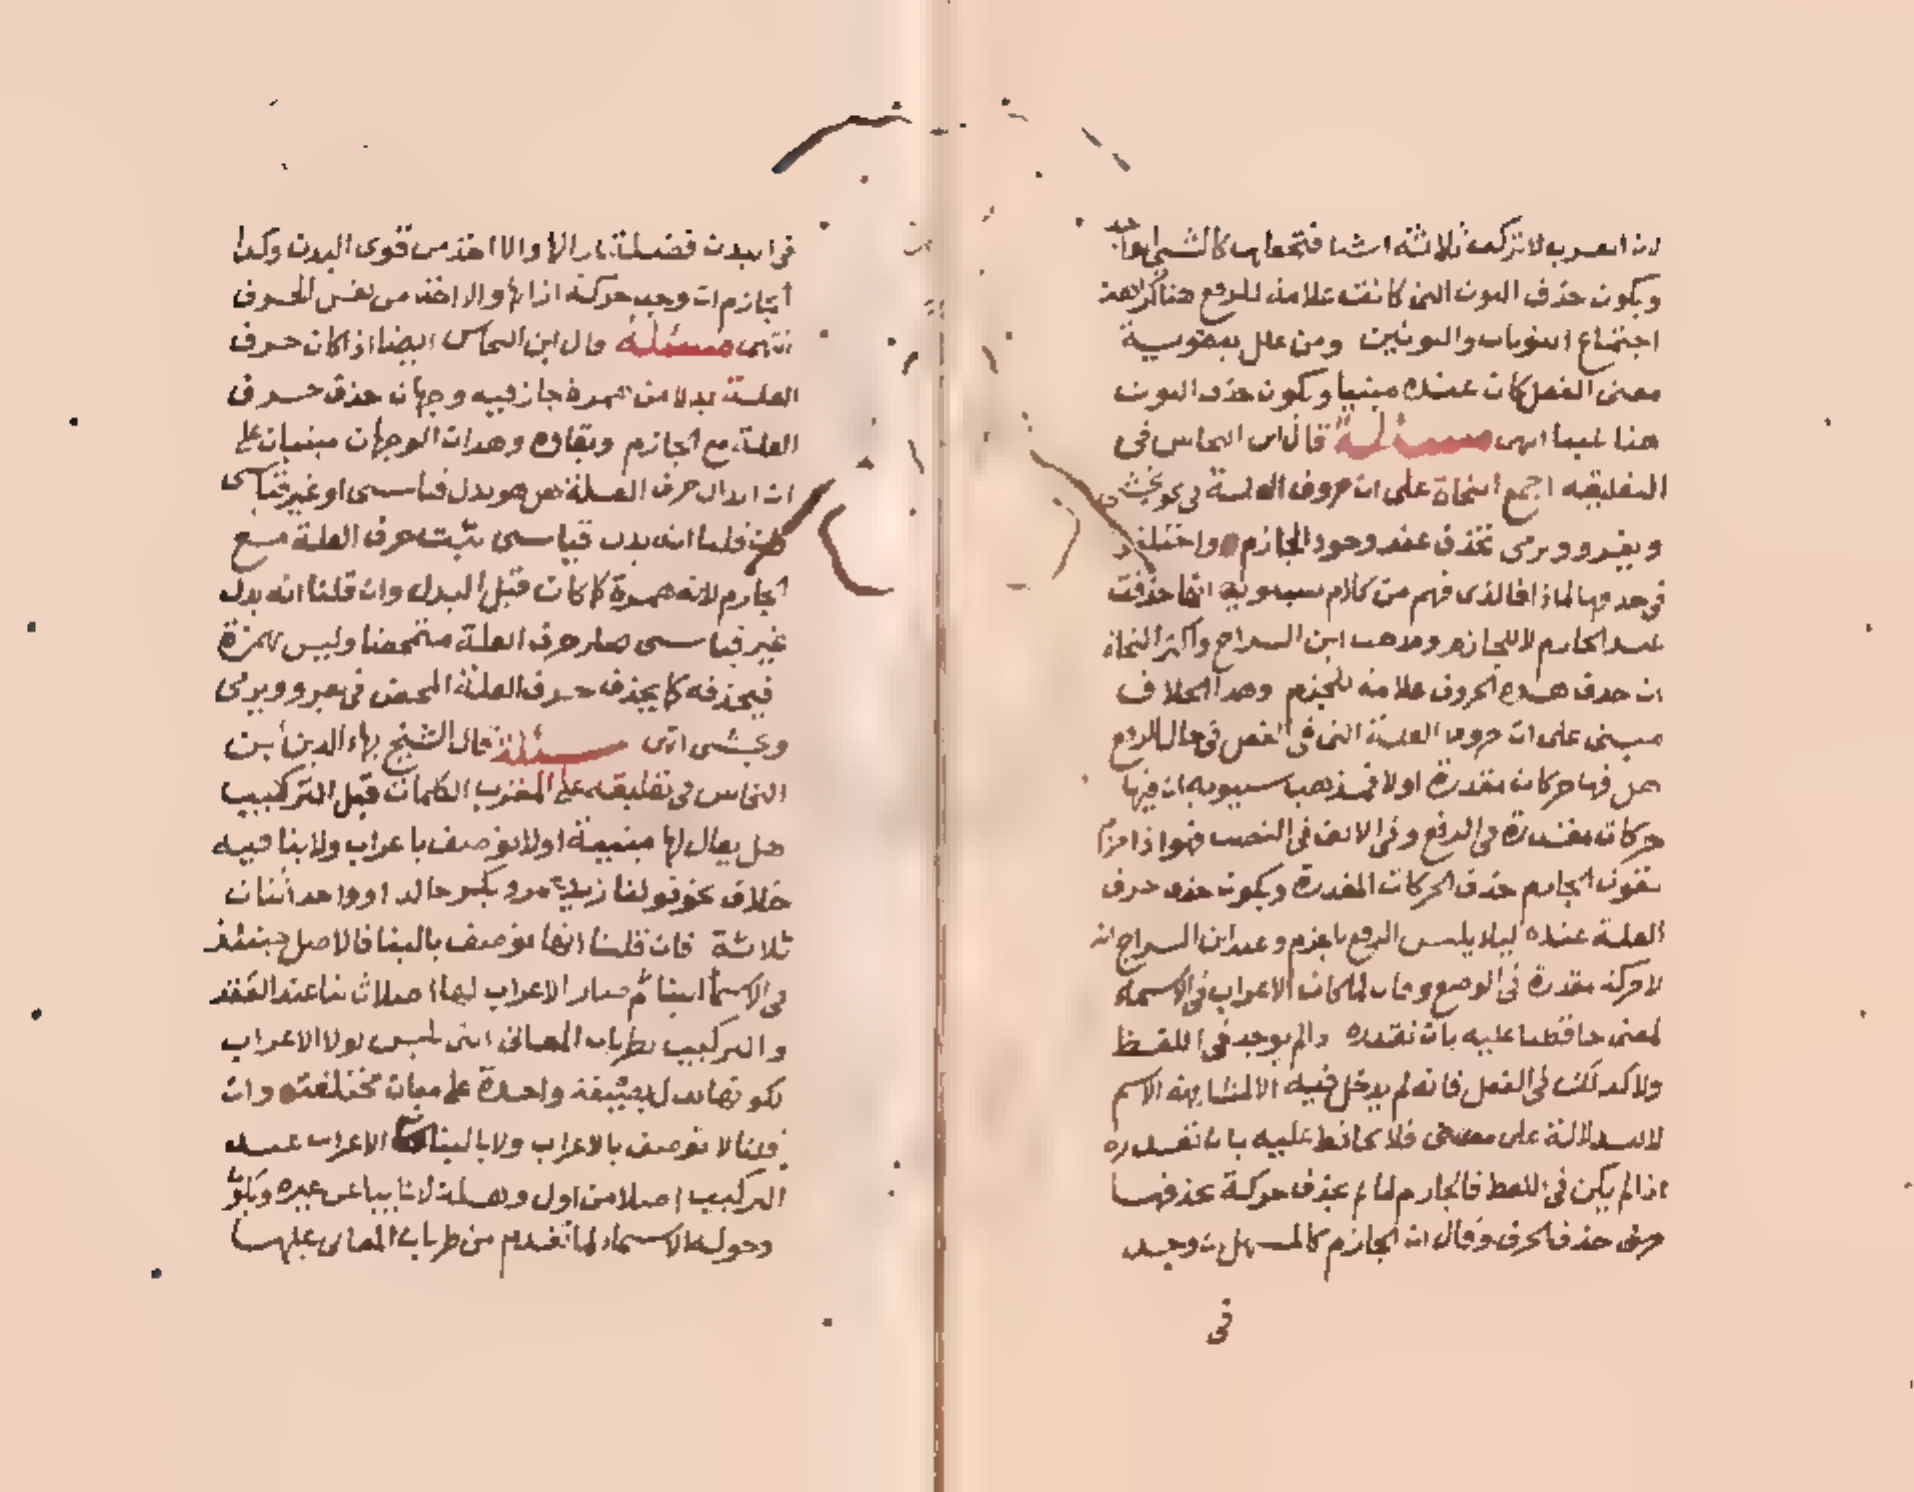 لان العرب لا تركب ثلاثة اشيا فتجعلها كالشى الواحد
ويكون حذف النون التى كانت علامة للرفع هنا كراهة
اجتماع النونات والنونين ومن علل ببعض
معنى الفعل كان عنده مبنيا ويكون حذف النون
هنا انتهى مسئلة قال ابن النحاس فى
التعليقه اجمع النحاة على ان حروف العلة فى نحو يخشى
ويغزو ويرمى تحذف عند وجود الجازم واختلف
فى حذفها لماذا فالذى فهم من كلام سيبويه انها حذفت
عند الجازم لا للجازم ومذهب ابن السراج واكثر النحاه
ان حذف هذه الحروف علامة للجزم وهذا الخلاف
مبنى على ان حروف العلة التى فى الفعل فى حال الرفع
هل فيها حركات مقدرة اولا فمذهب سيبويه ان فيها
حركات مقدرة فى الرفع وفى الالف فى النصب فهو اذا جزم
يقول الجازم حذف الحركات المقدرة ويكون حذف حرف
العلة عنده ليلا يلبس الرفع بالجزم وعند ابن السراج انه
لا حركة مقدرة فى الرفع وقال لما كان الاعراب فى الاسماء
لمعنى حافظنا عليه بان نقدره اذا لم يوجد فى اللفظ
ولا كذلك فى الفعل فانه لم يدخل فيه الا لمشابهة الاسم
لا للدلالة على معنى فلا نحافظ عليه بان نقدره
اذا لم يكن فى اللفظ فالجازم لما لم يجد حركة يحذفها
حذف الحرف وقال ان الجازم كالمسهل ان وجد
فى
فى البدن فضلة ازالها والا اخذ من قوى البدن وكذا
الجازم ان وجد حركة ازالها والا اخذ من نفس الحرف
انتهى مسئلة قال ابن النحاس ايضا اذا كان حرف
العلة بدلا من همزة جاز فيه وجهان حذف حرف
العلة مع الجازم وبقاوه وهذان الوجهان مبنيان على
ان ابدال حرف العلة هل هو بدل قياسى او غير قياسى
فان قلنا انه بدل قياسى ثبت حرف العلة مع
الجازم لانه همزة كما كان قبل البدل وان قلنا انه بدل
غير قياسى صار حرف العلة متمحضا وليس همزة
فيحذفه كما يحذف حرف العلة المحض فى يغزو ويرمى
ويخشى انتهى مسئلة قال الشيخ بهاء الدين ابن
النحاس فى تعليقه على المقرب الكلمات قبل التركيب
هل يقال لها مبنية اولا توصف باعراب ولا بنا فيه
خلاف نحو قولنا زيد عمرو بكر خالد او واحد اثنان
ثلاثة فان قلنا انها توصف بالبنا فالاصل حينئذ
فى الاسما البنا ثم صار الاعراب لها اصلا ثانيا عند العقد
والتركيب لطريان المعانى التى تلبس لولا الاعراب
لكونها تدل بصيغة واحدة على معان مختلفة وان
قلنا لا توصف بالاعراب ولا بالبنا كان الاعراب عند
التركيب اصلا من اول وهلة لا نايبا عن غيره ويكون
دخوله الاسماء لما تقدم من طريان المعانى عليها